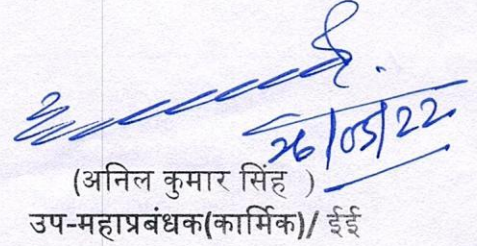 26/05/22
(अनिल कुमार सिंह )
उप-महाप्रबंधक(कार्मिक)/ ईई